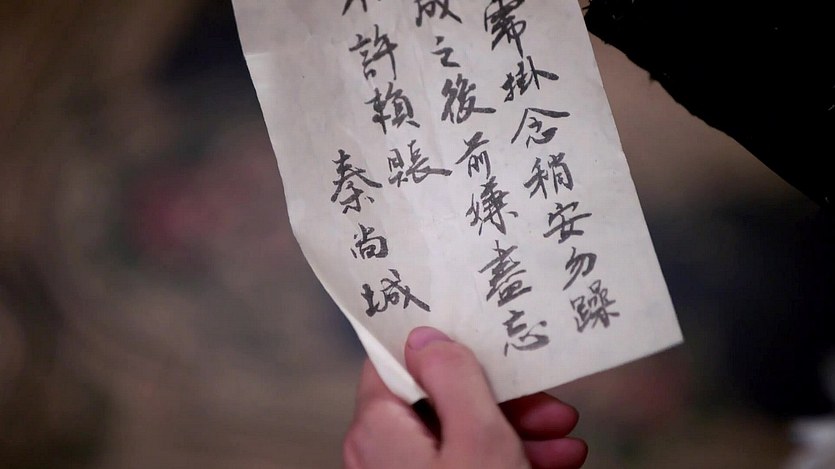 需掛念稍安勿躁
成之後前嫌盡忘
許賴賬
秦尚城